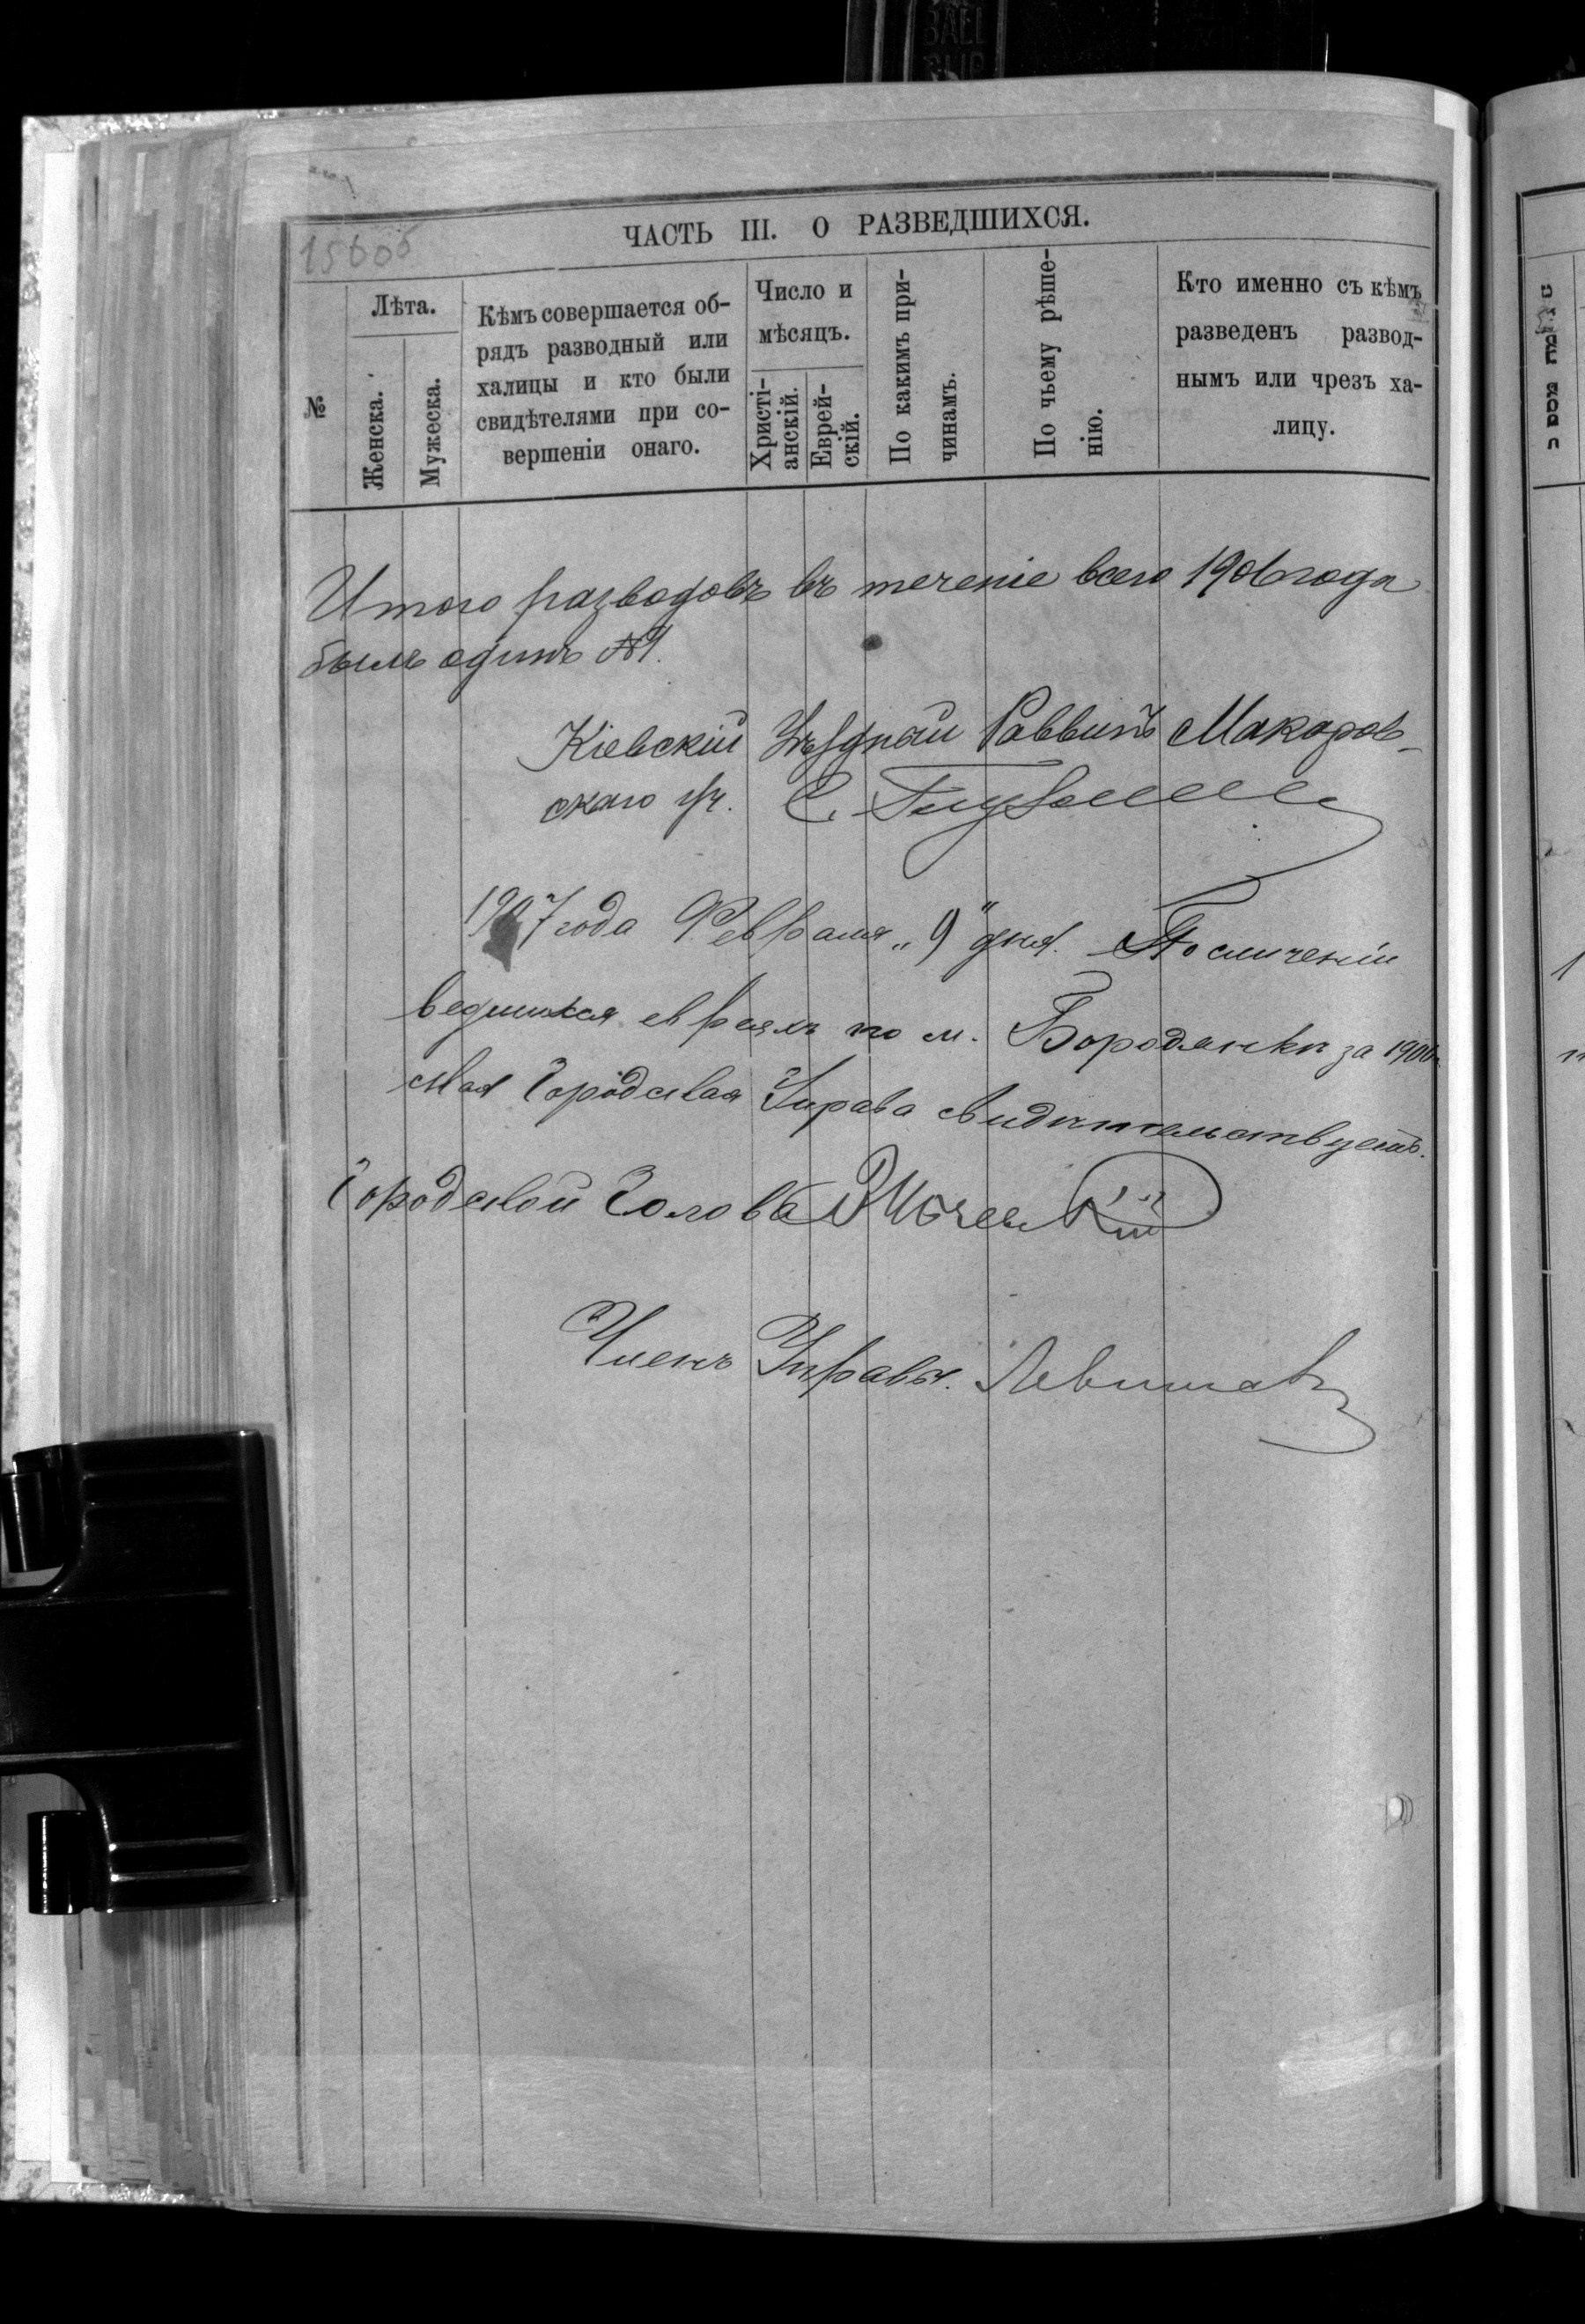 15605
ЧАСТЬ III. О РАЗВЕДШИХСЯ.
№
Лѣта.
Женска.
Мужеска.
Кѣмъ совершается об-
рядъ разводный или
халицы и кто были
свидѣтелями при со-
вершеніи онаго.
Число и
мѣсяцъ.
Христі-
анскій.
Еврей-
скій.
По какимъ при-
чинамъ.
По чьему рѣше-
нію.
Кто именно съ кѣмъ
разведенъ развод-
нымъ или чрезъ ха-
лицу.
Итого разводовъ въ теченіе всего 1906 года
былъ одинъ №1.
Кіевскій Уѣздный Раввинъ Макаров-
скаго уч. С.
1907 года Февраля „9" дня. По сличеніи
ведшихся евреяхъ по м. Бородянкѣ за 1906
ская Городская Управа свидѣтельствуетъ.
Городской Голова
Членъ Управы.